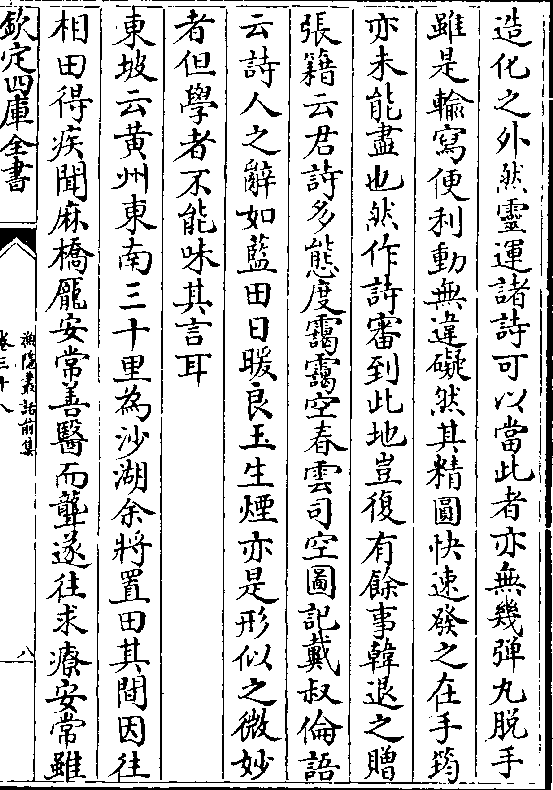 造化之外然靈運諸詩可以當此者亦無幾彈丸脱手
雖是輸寫便利動無違礙然其精圓快速發之在手筠
亦未能盡也然作詩審到此地豈復有餘事韓退之贈
張籍云君詩多態度靄靄空春雲司空圖記戴叔倫語
云詩人之辭如藍田日暖良玉生煙亦是形似之微妙
者但學者不能味其言耳
東坡云黄州東南三十里為沙湖余將置田其間因往
相田得疾聞麻橋龐安常善醫而聾遂往求療安常雖
欽定四庫全書
漁隱叢話前集
卷三十八
八